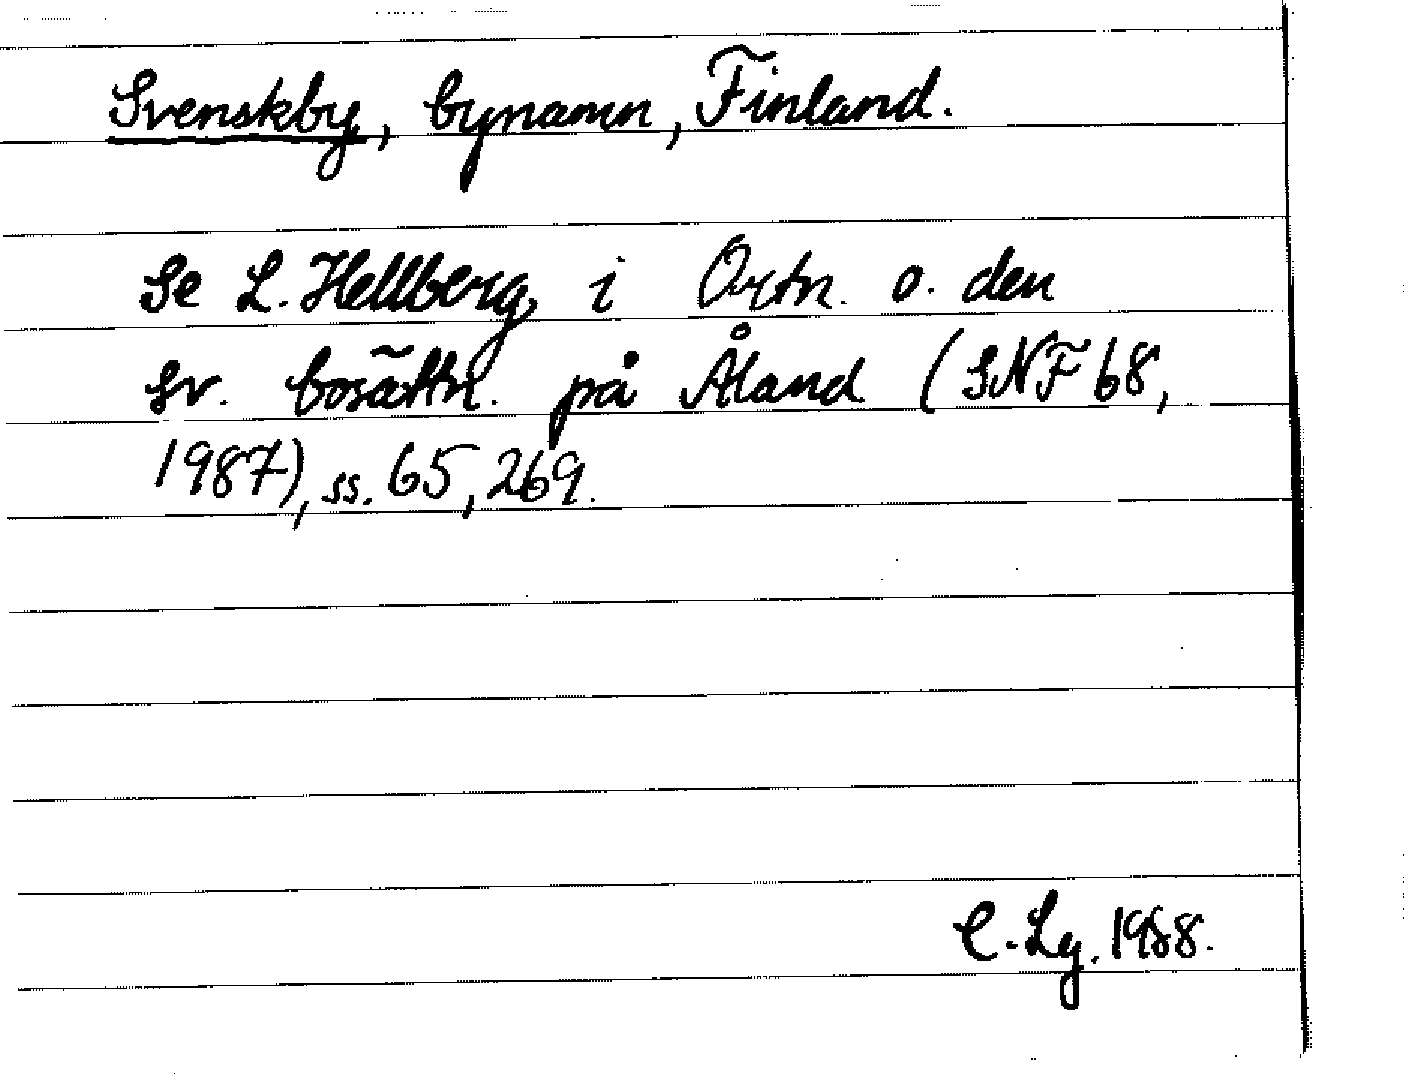 Svenskby, bynamn, Finland.
Se L. Hellberg, i Ortn. o. den
sv. bosättn. på Åland (SNF 68,
1987), ss. 65, 269.
C. Lg. 1988.